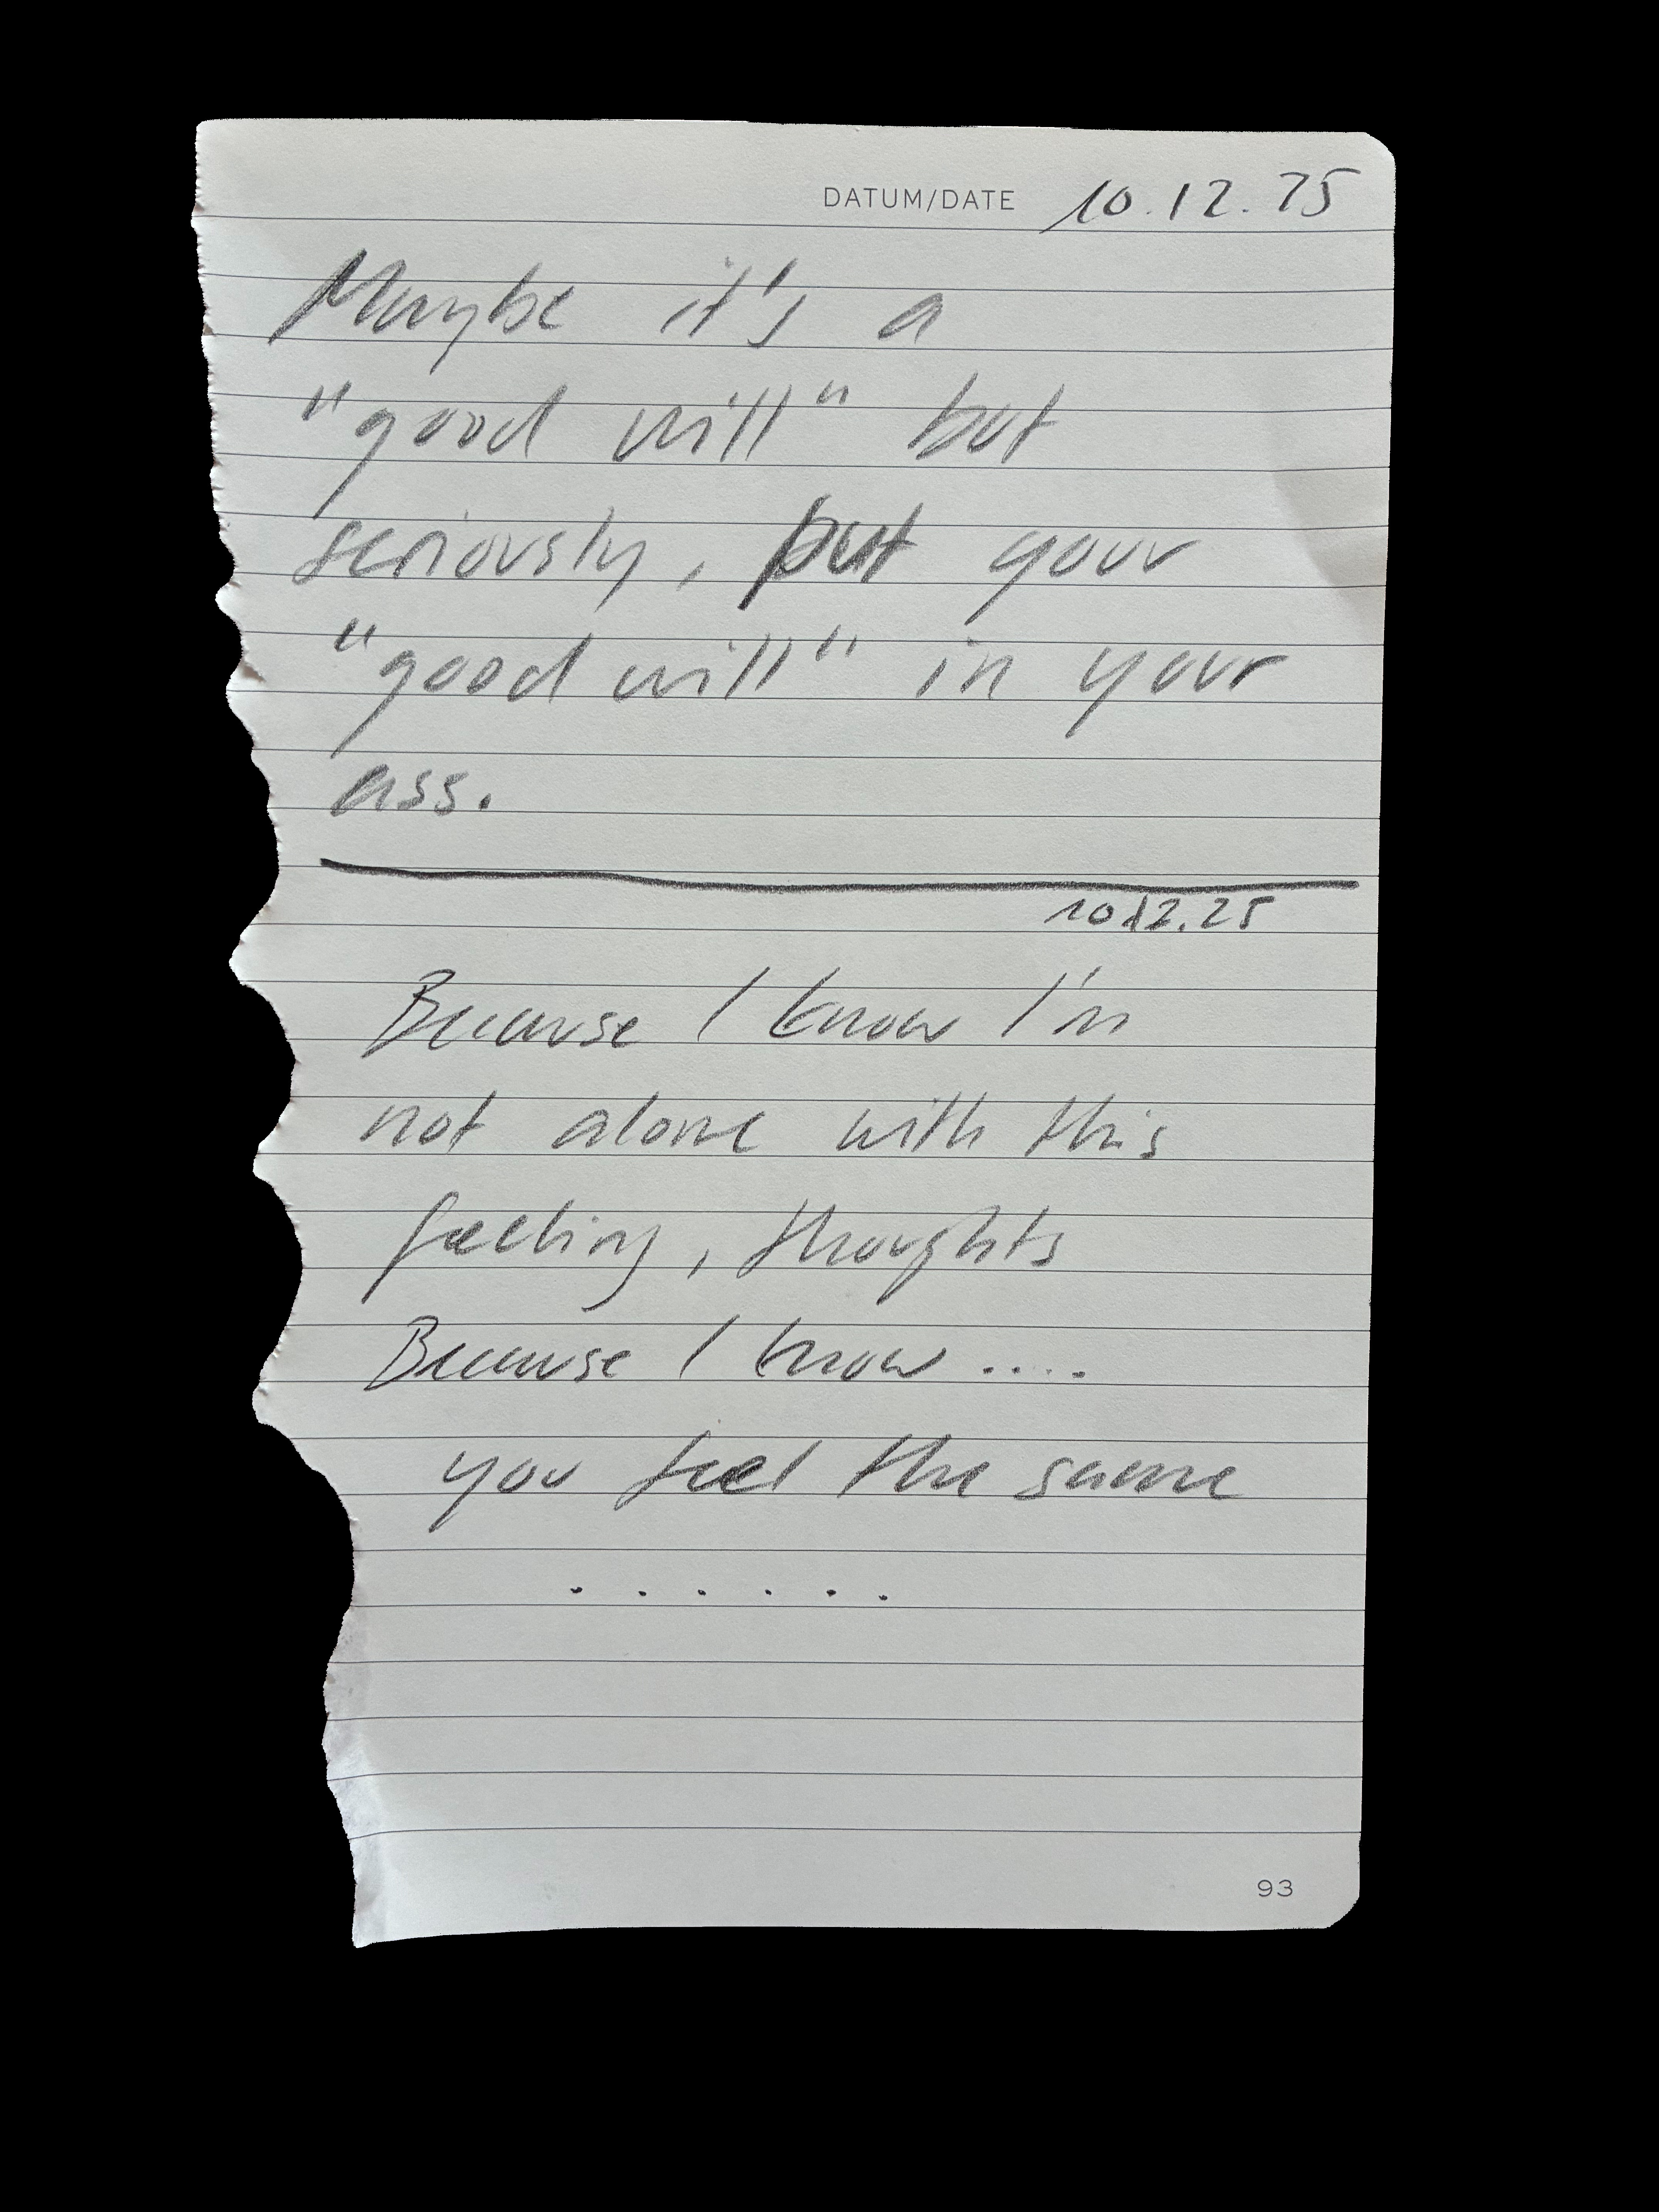 DATUM/DATE 10.12.25
Maybe it's a
"good will" but
seriously, put your
"good will" in your
ass.
10.12.25
Because I know I'm
not alone with this
feeling, thoughts
Because I know ....
you feel the same
. . . . . .
93